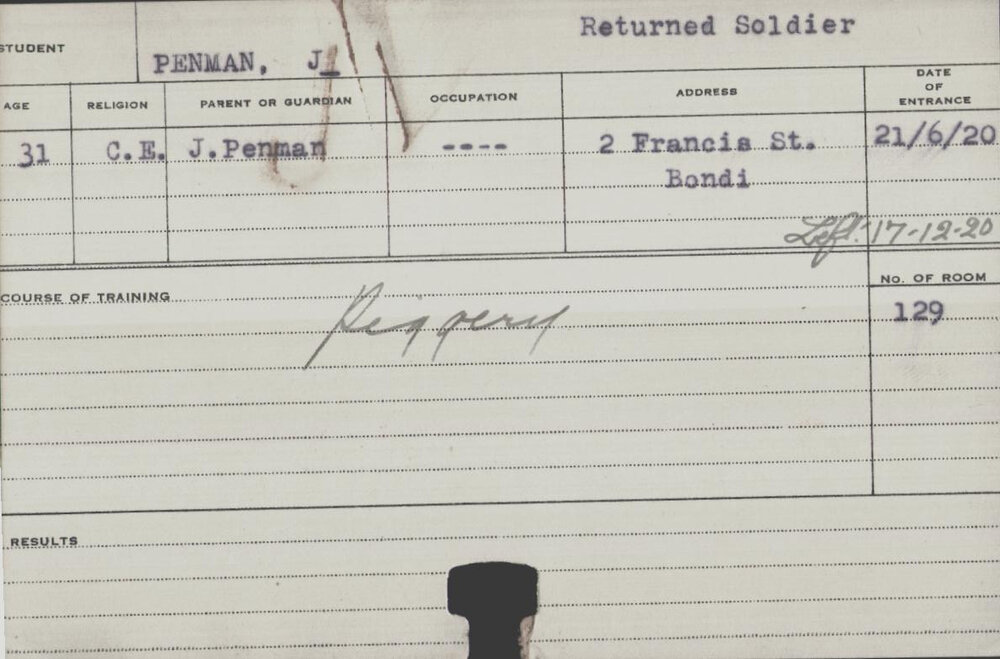 Returned Soldier
STUDENT
PENMAN, J
AGE RELIGION PARENT OR GUARDIAN OCCUPATION ADDRESS DATE OF ENTRANCE
31 C.E. J.Penman ---- 2 Francis St. 21/6/20
Bondi
Left 17-12-20
COURSE OF TRAINING
Piggery
No. OF ROOM
129
RESULTS